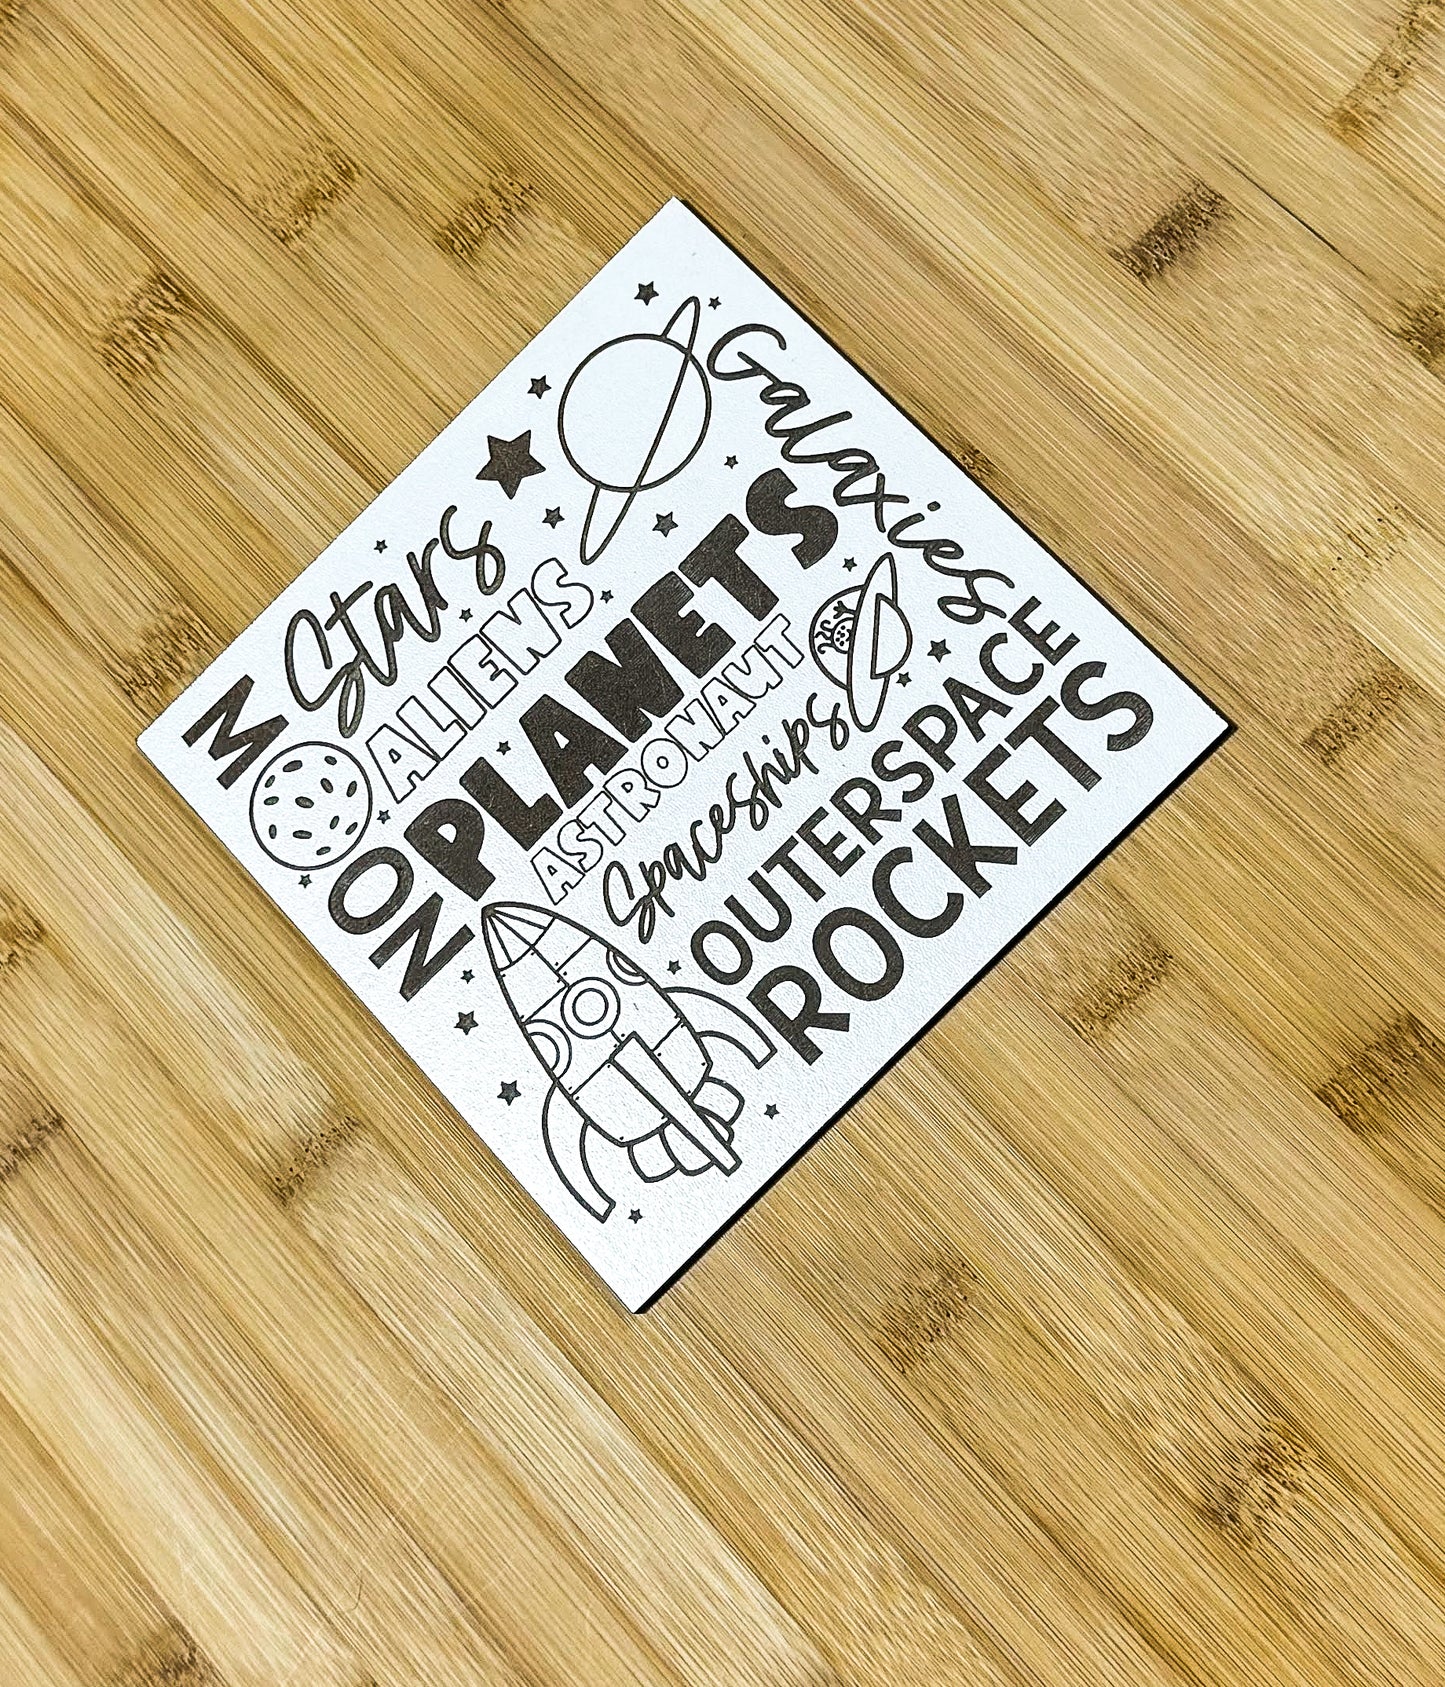 MOON
Stars
ALIENS
PLANETS
ASTRONAUT
Spaceships
OUTERSPACE
ROCKETS
Galaxies